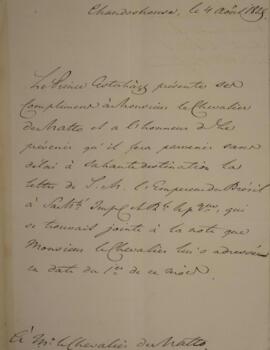 Chandoshouse, le 4 Août 1825
Le Prince Esterházy présente ses
Complimens à Monsieur le Chevalier
de Mattos et a l'honneur de Le
prévenir qu'il fera parvenir sans
délai à Sa haute destination la
lettre de S. M. l'Empereur du Brésil
à Sa Mté Impl et Rle qui
se trouvait jointe à la note que
Monsieur le Chevalier lui a adressée
en date du 1er de ce mois.
à Mr. le Chevalier de Mattos